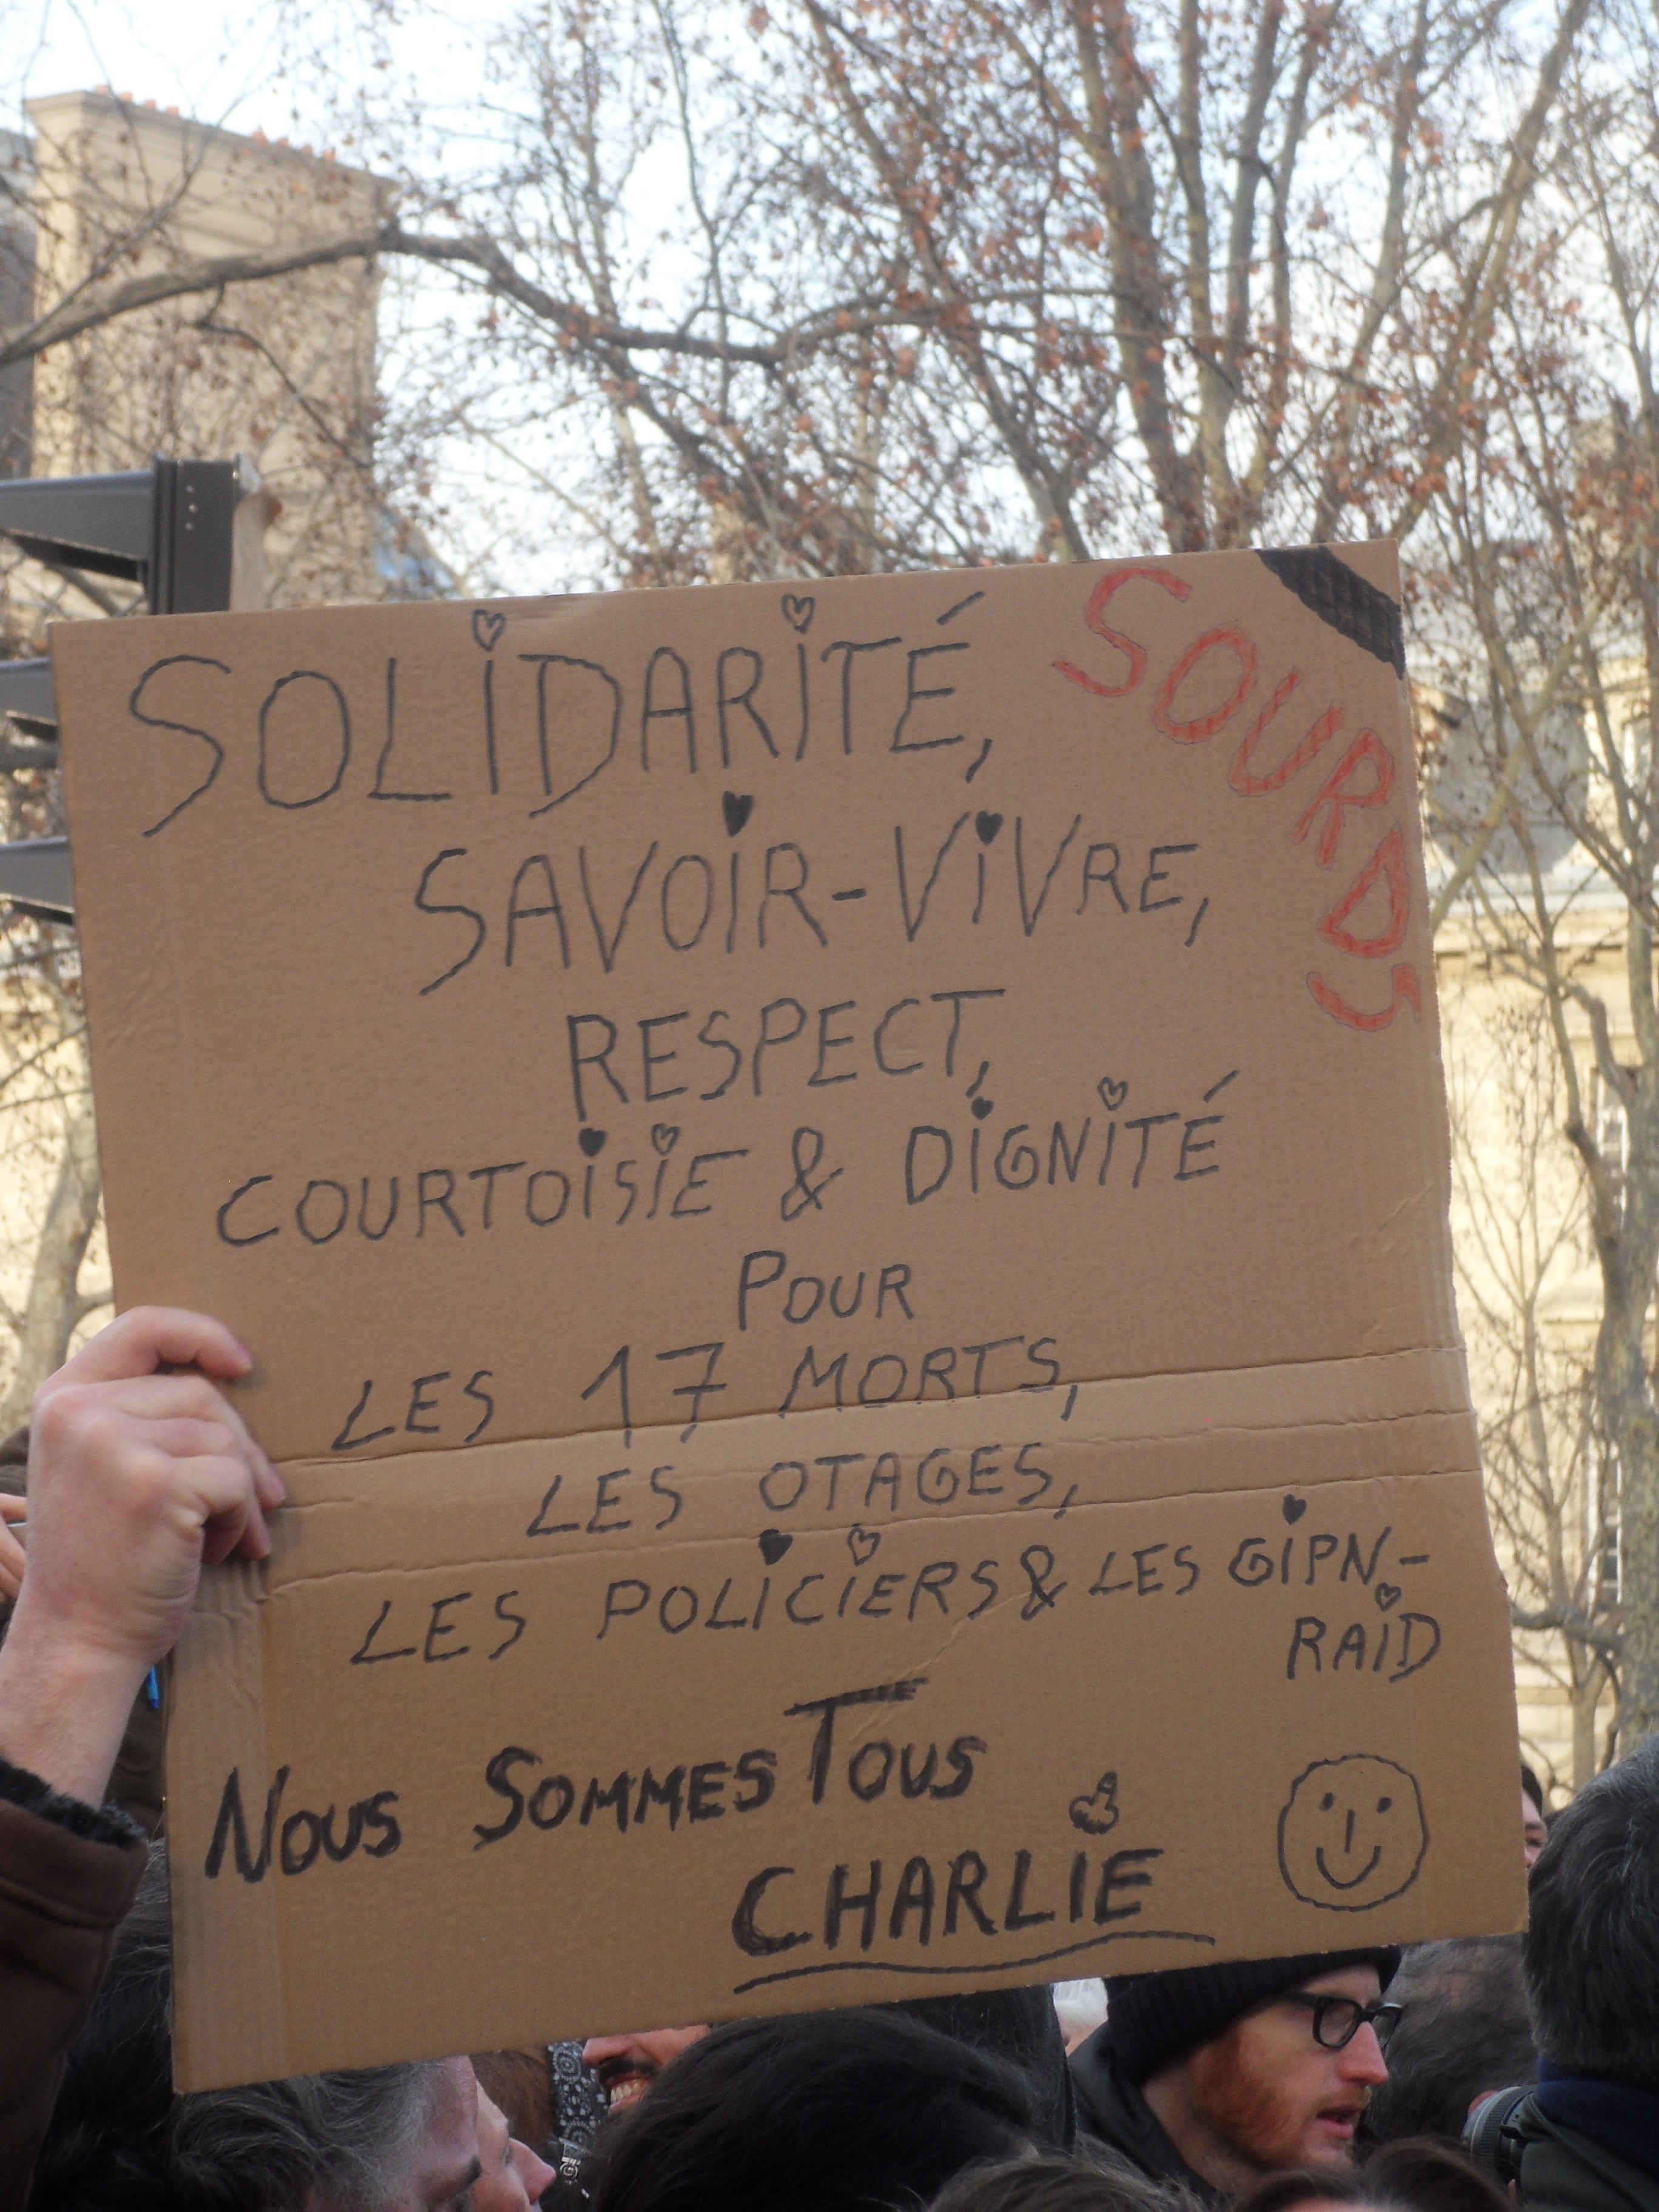 SOLiDARiTÉ,
SOURDS
SAVOiR-ViVRE,
RESPECT,
COURTOiSiE & DiGNiTÉ
POUR
LES 17 MORTS,
LES OTAGES,
LES POLiCiERS & LES GiPN-
RAiD
NOUS SOMMES TOUS
CHARLiE